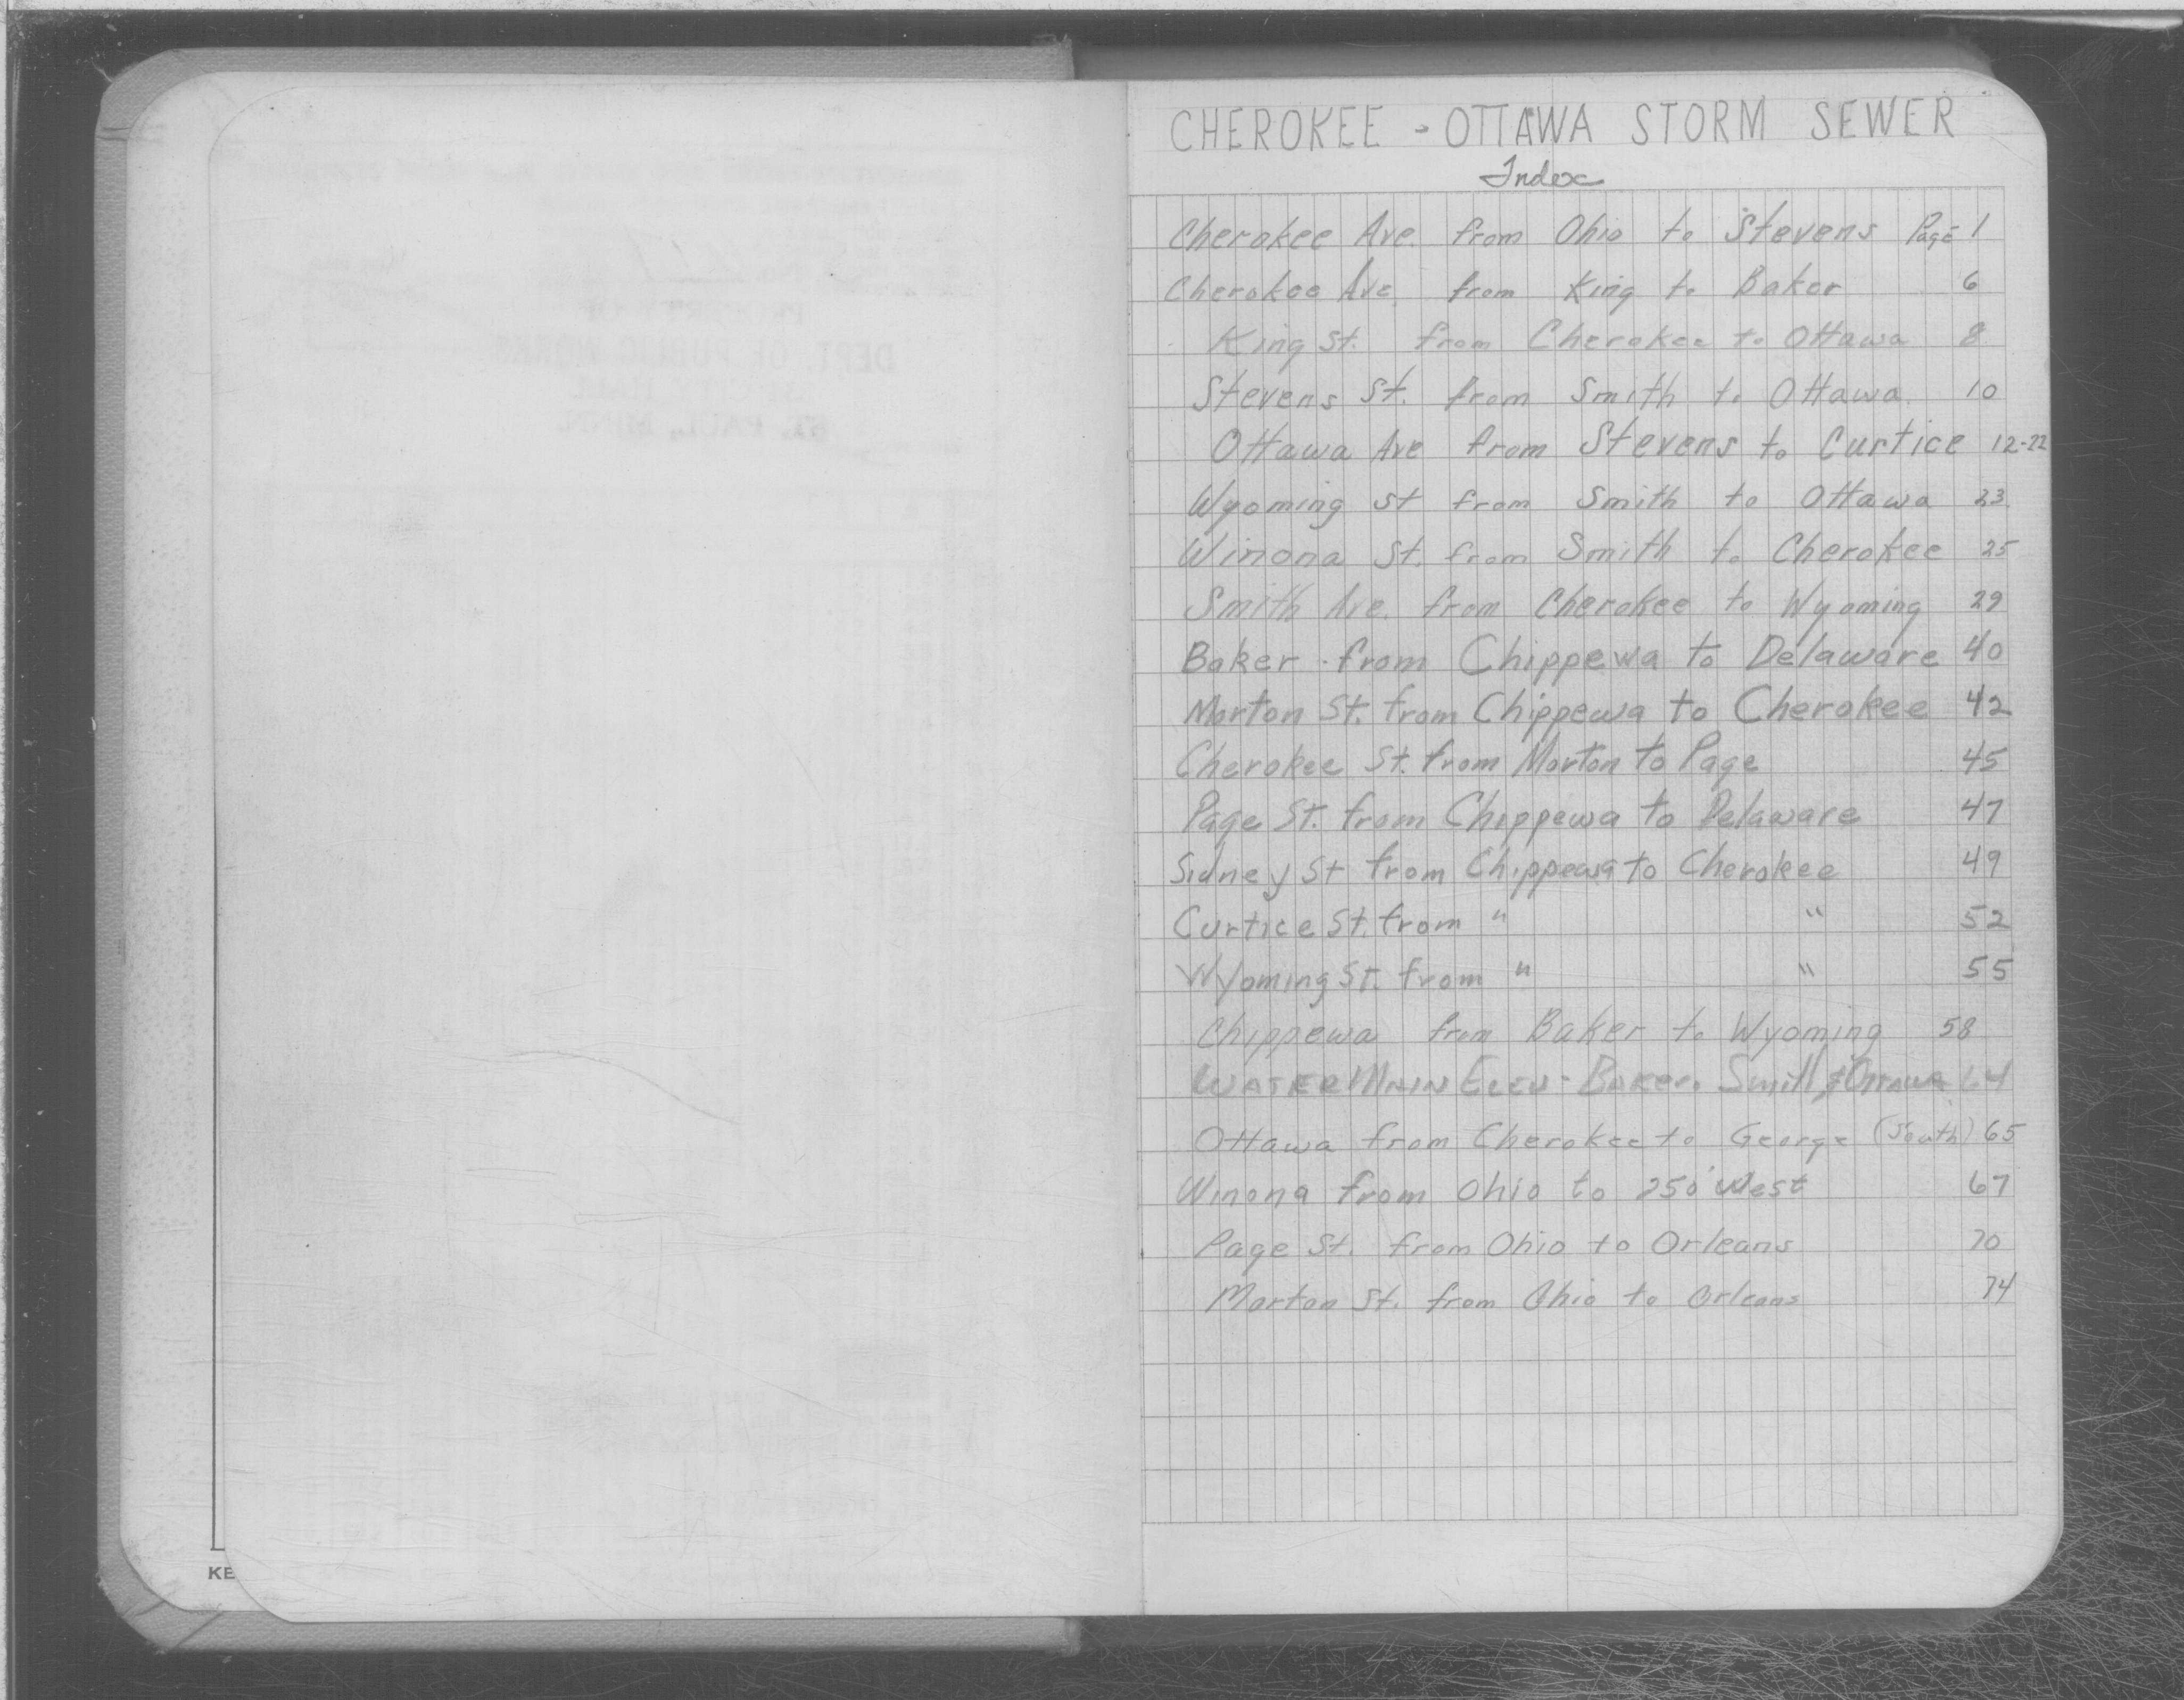 CHEROKEE - OTTAWA STORM SEWER
Index
Cherokee Ave. from Ohio to Stevens Page 1
Cherokee Ave. from King to Baker 6
King St. from Cherokee to Ottawa 8
Stevens St. from Smith to Ottawa 10
Ottawa Ave from Stevens to Curtice 12-22
Wyoming St from Smith to Ottawa 23
Winona St. from Smith to Cherokee 25
Smith Ave. from Cherokee to Wyoming 29
Baker from Chippewa to Delaware 40
Morton St. from Chippewa to Cherokee 42
Cherokee St. from Morton to Page 45
Page St. from Chippewa to Delaware 47
Sidney St from Chippewa to Cherokee 49
Curtice St. from " " 52
Wyoming St. from " " 55
Chippewa from Baker to Wyoming 58
WATER MAIN ELEV - BAKER, Smith & OTTAWA 64
Ottawa from Cherokee to George (South) 65
Winona from Ohio to 250' West 67
Page St. from Ohio to Orleans 70
Morton St. from Ohio to Orleans 74
KE
PROPERTY OF
DEPT. OF PUBLIC WORKS
ST. PAUL, MINN.